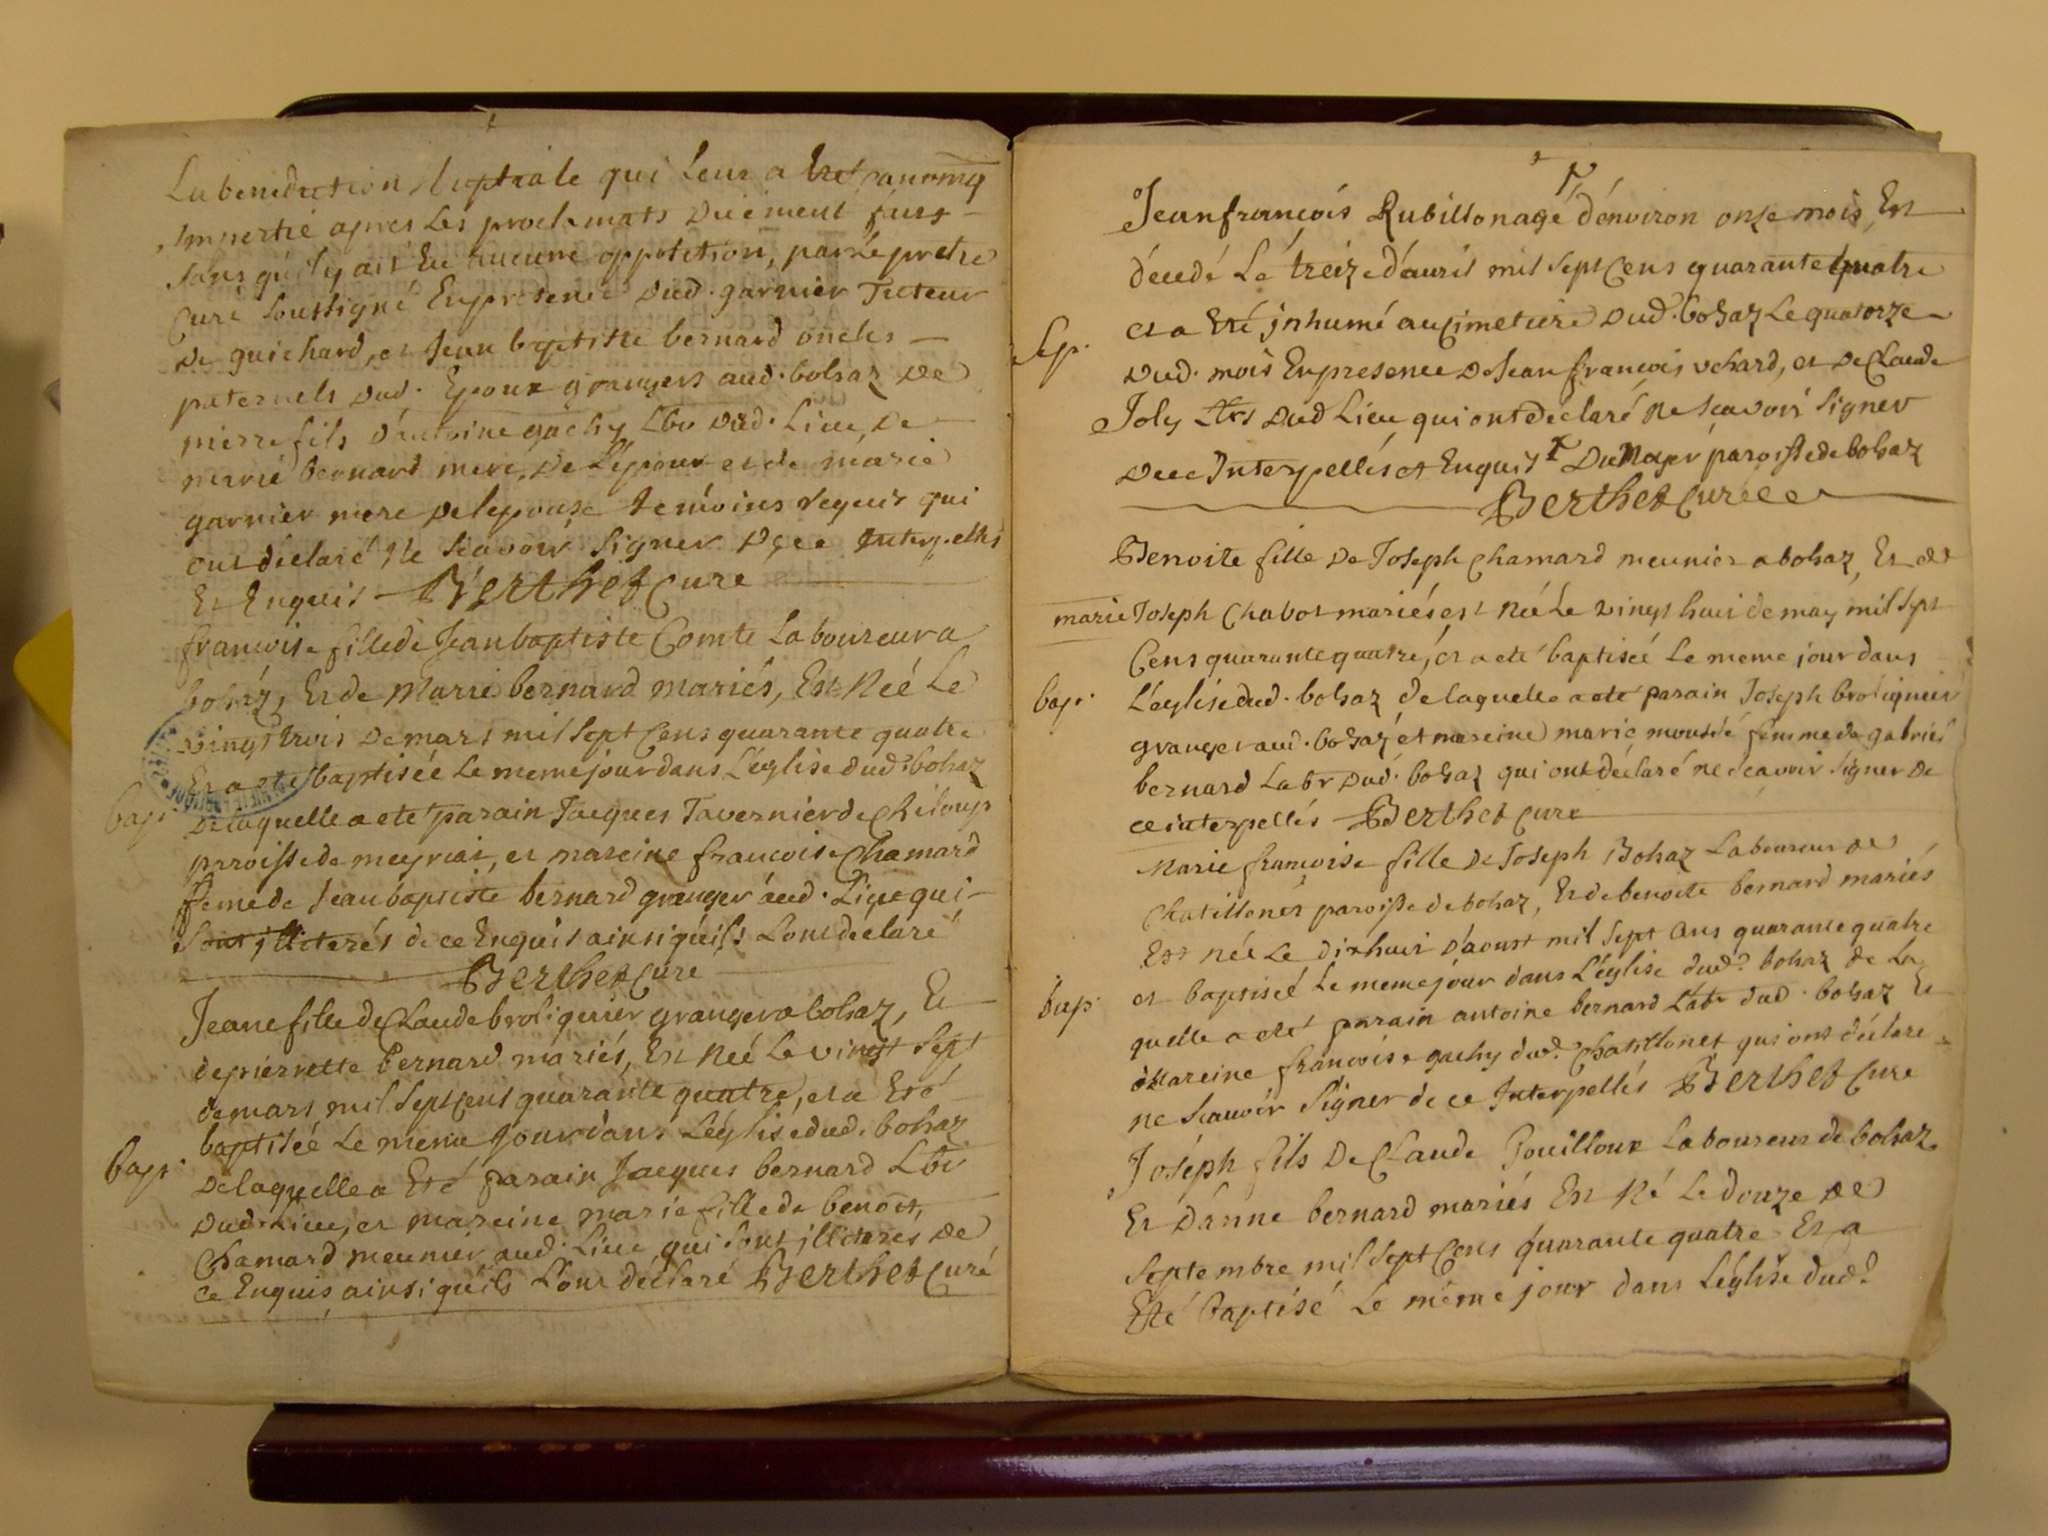 La benediction Nuptiale qui Leur a Eté
Impertie apres Les proclamats Duement
sans qu'il y ait Eu aucune opposition, par Le pretre
Curé soussigné Enpresence Dud. garnier Tuteur
De guichard, et Jean baptiste bernard oncles
paternels Dud. Epoux grangers aud. bohaz De
pierre fils d'antoine gachy Lbr Dud. Lieu, De
marie bernard mere, De L'epoux et de marie
garnier mere De lepouse temoins requis qui
ont déclaré Ne scavoir signer De ce Interpellés
Et Enquis Berthet Cure
francoise fille de Jean baptiste Comte Laboureur a
bohaz, Et de Marie bernard mariés, Est Née Le
vingt trois De mars mil sept Cens quarante quatre
Et a eté baptisée Le meme jour dans L'église dud. bohaz
bap.
De laquelle a eté parain Jacques Tavernier de Riloup
paroisse de meyriat, et mareine francoise Chamard
feme de Jean baptiste bernard granger aud. Lieu qui
sont illiterés de ce Enquis ainsi qu'ils L'ont déclaré
Berthet Cure
Jeane fille de Claude broliquier granger a bohaz, Et
de pierrette bernard mariés, Est Née Le vingt sept
de mars mil sept Cens quarante quatre, et a Eté
baptisée Le meme jour dans L'église dud. bohaz
bap.
De laquelle a Eté parain Jacques bernard Lbr
Dud. Lieu, et mareine marie fille de benoit,
Chamard meunier aud. Lieu qui sont illiteres De
ce Enquis ainsi qu'ils L'ont déclaré Berthet Curé
Jean francois Rubillon agé d'environ onze mois, Est
décedé Le treize d'auril mil sept Cens quarante quatre
et a Eté inhumé au Cimetiere Dud. bohaz Le quatorze
Sep.
Dud. mois Enpresence De Jean francois uchard, et De Claude
Joly Dud Lieu qui ont déclaré ne scavoir signer
De ce Interpellés et Enquis paroisse de bohaz
Berthet Curé
Benoite fille De Joseph Chamard meunier a bohaz, Et de
marie Joseph Chabot mariés est Née Le vingt huit de may mil sept
Cens quarante quatre, et a eté baptisée Le meme jour dans
bap.
L'église dud. bohaz De laquelle a eté parain Joseph broliquier
granger aud. bohaz et mareine marie femme de gabriel
bernard Labr Dud. bohaz qui ont déclaré ne scavoir signer De
ce interpellés Berthet Cure
Marie francoise fille De Joseph Bohaz Laboureur De
Chatillonet paroisse de bohaz, Et de benoite bernard mariés
Est née Le dixhuit d'aoust mil sept Cens quarante quatre
et baptisée Le meme jour dans L'église dud. bohaz de La
bap.
quelle a eté parain antoine bernard Labr dud. bohaz Et
Mareine francoise gachy dud. Chatillonet qui ont déclaré
ne scauoir signer de ce Interpellés Berthet Cure
Joseph fils De Claude Pouilloux Laboureur de bohaz
Et D'anne bernard mariés Est Né Le douze De
septembre mil sept Cens quarante quatre Et a
Eté baptisé Le même jour dans L'église dud.